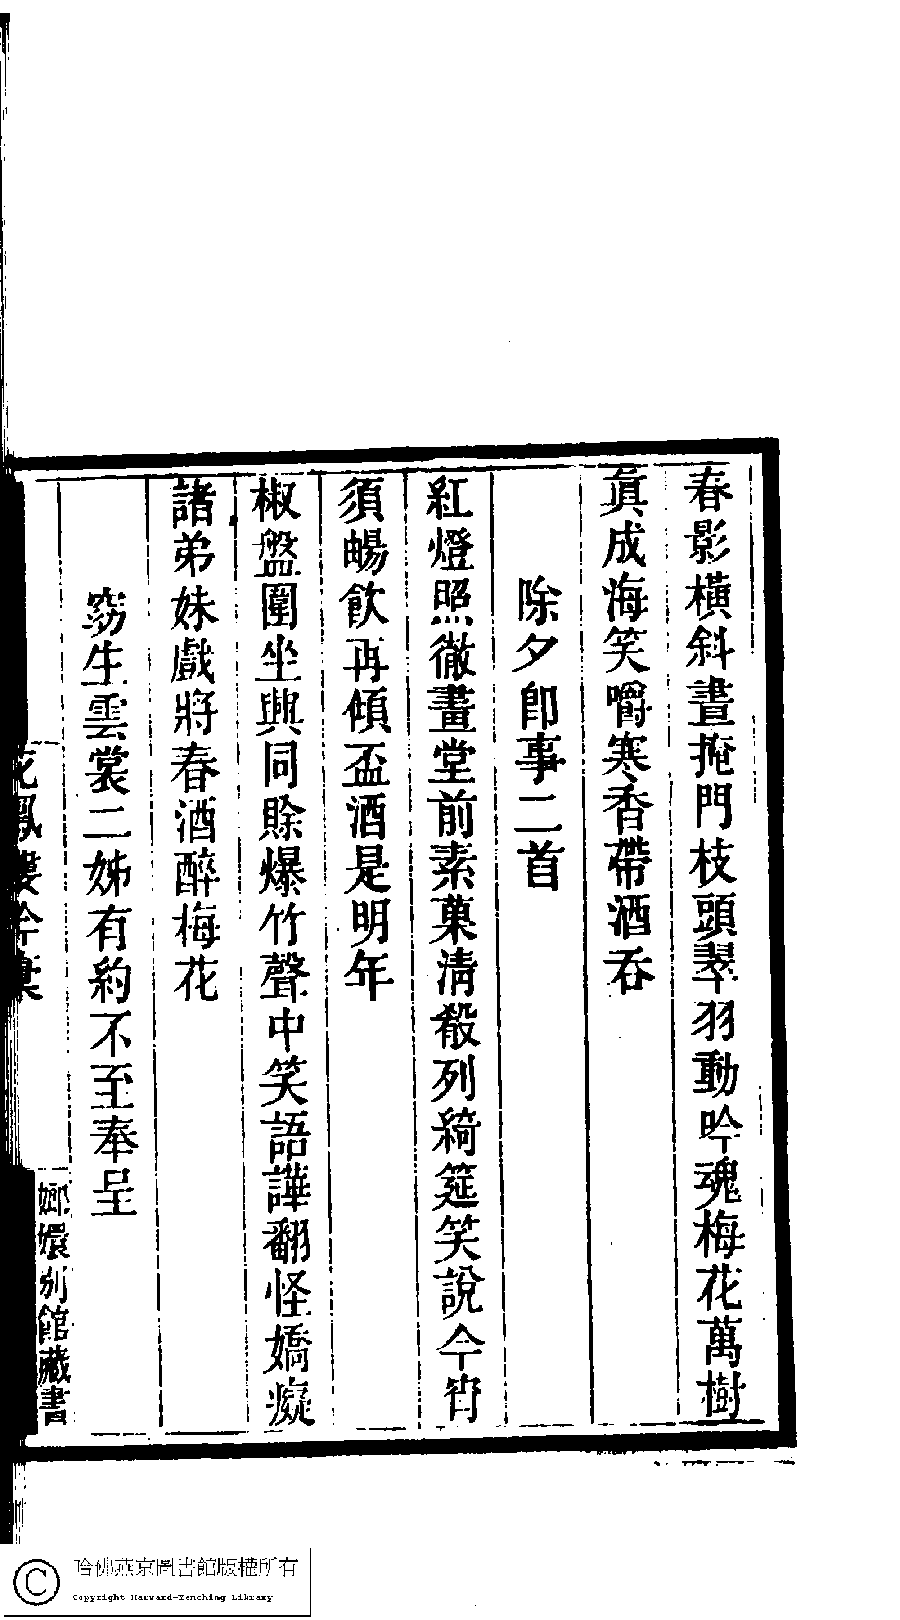 春影橫斜晝掩門枝頭翠羽動吟魂梅花萬樹
眞成海笑嚼寒香帶酒吞
除夕卽事二首
紅燈照徹畫堂前素菓淸殽列綺筵笑說今宵
須暢飮再傾盃酒是明年
椒盤圍坐興同賒爆竹聲中笑語譁翻怪嬌癡
諸弟妹戲將春酒醉梅花
窈生雲裳二姊有約不至奉呈
花鳳樓吟稾
嫏嬛別館藏書
哈佛燕京圖書館版權所有
Copyright Harvard-Yenching Library